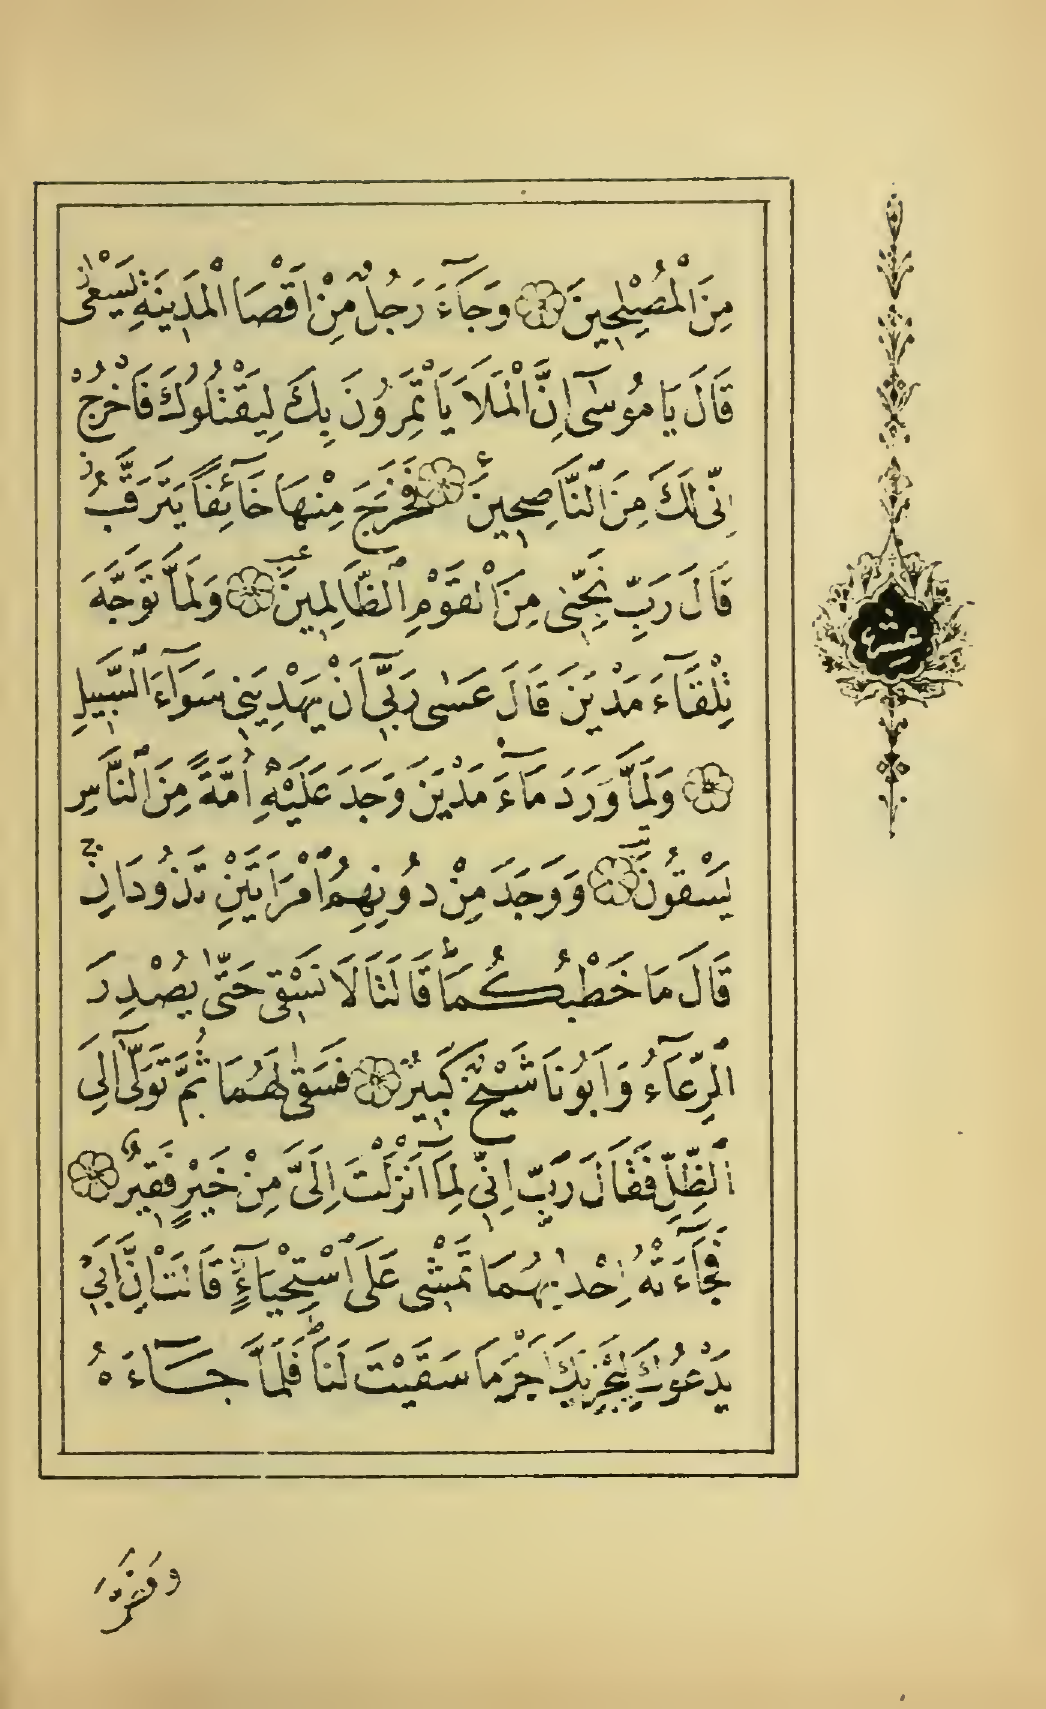 مِنَ الْمُصْلِحِينَ وَجَآءَ رَجُلٌ مِنْ اَقْصَا الْمَدِينَةِ يَسْعٰى
قَالَ يَا مُوسٰٓى اِنَّ الْمَلَاَ يَاْتَمِرُونَ بِكَ لِيَقْتُلُوكَ فَاخْرُجْ
اِنِّى لَكَ مِنَ النَّاصِحِينَ فَخَرَجَ مِنْهَا خَآئِفًا يَتَرَقَّبُ
قَالَ رَبِّ نَجِّنِى مِنَ الْقَوْمِ الظَّالِمِينَ وَلَمَّا تَوَجَّهَ
تِلْقَآءَ مَدْيَنَ قَالَ عَسٰى رَبِّٓى اَنْ يَهْدِيَنِى سَوَآءَ السَّبِيلِ
وَلَمَّا وَرَدَ مَآءَ مَدْيَنَ وَجَدَ عَلَيْهِ اُمَّةً مِنَ النَّاسِ
يَسْقُونَ وَوَجَدَ مِنْ دُونِهِمُ امْرَاَتَيْنِ تَذُودَانِ
قَالَ مَا خَطْبُكُمَا قَالَتَا لَا نَسْقِى حَتّٰى يُصْدِرَ
الرِّعَآءُ وَاَبُونَا شَيْخٌ كَبِيرٌ فَسَقٰى لَهُمَا ثُمَّ تَوَلّٰٓى اِلَى
الظِّلِّ فَقَالَ رَبِّ اِنِّى لِمَٓا اَنْزَلْتَ اِلَىَّ مِنْ خَيْرٍ فَقِيرٌ
فَجَآءَتْهُ اِحْدٰيهُمَا تَمْشِى عَلَى اسْتِحْيَآءٍ قَالَتْ اِنَّ اَبِى
يَدْعُوكَ لِيَجْزِيَكَ اَجْرَ مَا سَقَيْتَ لَنَا فَلَمَّا جَآءَهُ
عشر
وَقَصَّ